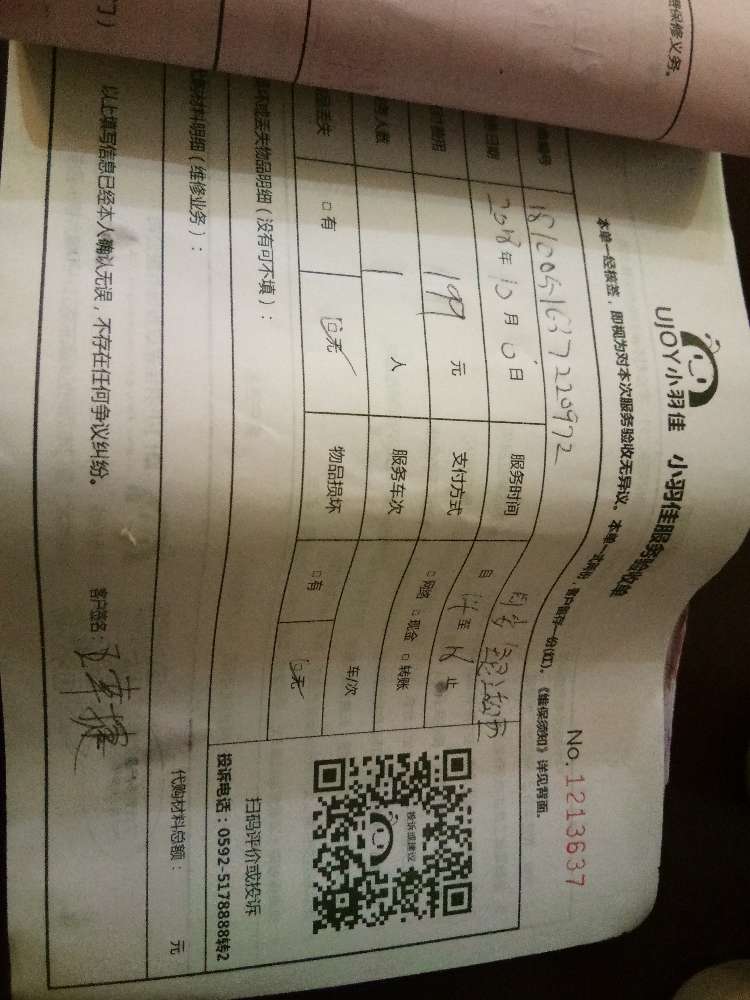 保修义务。
UJOY小羽佳 小羽佳服务验收单
No.1213637
本单一经核签，即视为对本次服务验收无异议。本单一式两份，客户留存一份(红)。《维保须知》详见背面。
编号 1810051637220972
日期 2018年10月6日 服务时间 自 14 至 18 止
费用 199 元 支付方式 □网络 □现金 □转账
人数 1 人 服务车次 车/次
丢失 □有 ☑无 物品损坏 □有 ☑无
丢失物品明细（没有可不填）：
投诉或建议
扫码评价或投诉
投诉电话：0592-5178888转2
材料明细（维修业务）：
代购材料总额： 元
以上填写信息已经本人确认无误，不存在任何争议纠纷。
客户签名：